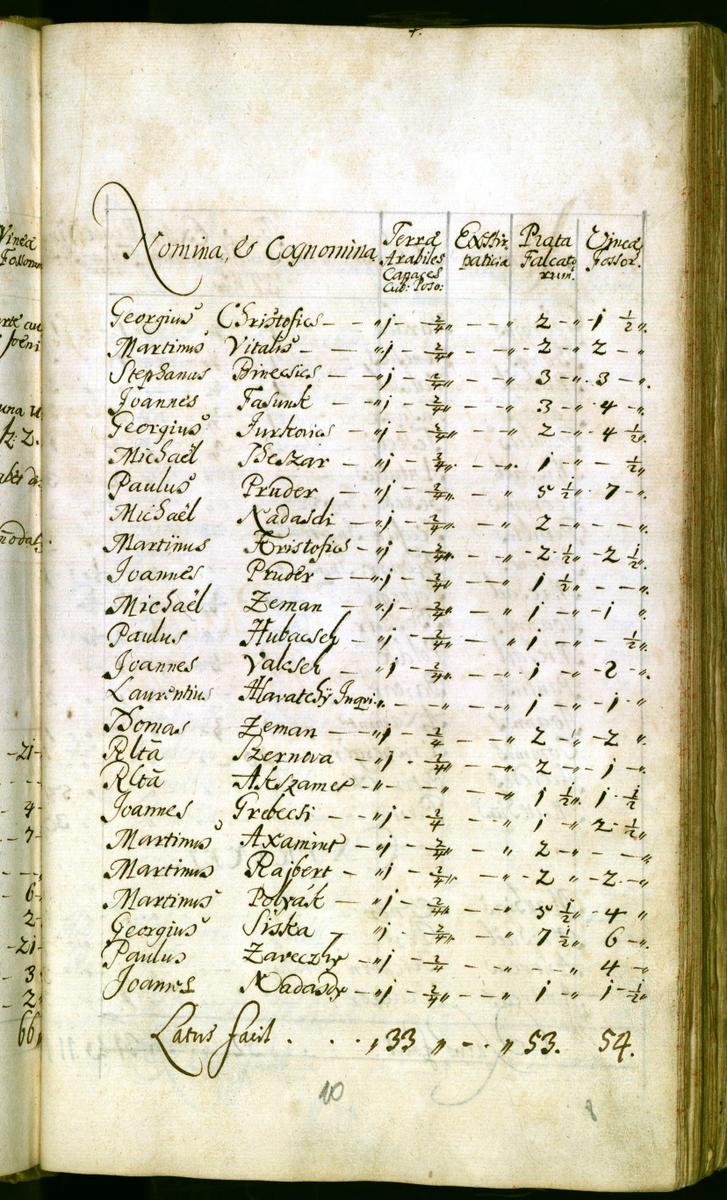 Vineæ
Fossorum
Nomina, & Cognomina Terræ Arabiles Capaces Cub: Poso: Exstirpaticia Prata Falcatorum. Vineæ Fossor.
Georgius Christofics — „ 1 – 2/4 „ — „ 2 – „ 1 1/2 „
Martinus Vitalis — „ 1 – 2/4 „ — „ 2 – „ 2 – „
Stephanus Binecsics – „ 1 – 2/4 „ — „ 3 – „ 3 – „
Joannes Fasunk – „ 1 – 2/4 „ — „ 3 – „ 4 – „
Georgius Jurkovics – „ 1 – 2/4 „ — „ 2 – „ 4 1/2 „
Michaël Theszar – „ 1 – 2/4 „ — „ 1 – „ – 1/2 „
Paulus Pruder – „ 1 – 2/4 „ — „ 5 1/2 „ 7 – „
Michaël Nadasdi – „ 1 – 2/4 „ — „ 2 – „ – – „
Martinus Kristofics – „ 1 – 2/4 „ — „ 2 1/2 „ 2 1/2 „
Joannes Pruder – „ 1 – 2/4 „ — „ 1 1/2 „ – – „
Michaël Zeman – „ 1 – 2/4 „ — „ 1 – „ 1 „
Paulus Hubacseh – „ 1 – 2/4 „ — „ 1 – „ – 1/2 „
Joannes Valcseh – „ 1 – 2/4 „ — „ 1 – „ 2 – „
Laurentius Havatchÿ Inqvi. „ – – „ — „ 1 – „ 1 – „
Thomas Zeman – „ 1 – 2/4 – „ 2 – „ 2 – „
Rltã Szernova – „ 1 – 2/4 „ — „ 2 – „ 1 – „
Rltã Akszamet – „ – – – „ 1 1/2 „ 1 1/2
Joannes Grebecsi – „ 1 – 2/4 – „ 1 – „ 2 1/2 „
Martinus Axamint – „ 1 – 2/4 „ – „ 2 – – – „
Martinus Rajbert – „ 1 – 2/4 „ — „ 2 – „ 2 – „
Martinus Polyák – „ 1 – 2/4 „ — „ 5 1/2 „ 4 „
Georgius Siska – „ 1 – 2/4 „ — „ 7 1/2 „ 6 – „
Paulus Zareczky – „ 1 – 2/4 — „ – – – 4 – „
Joannes Nadasdy – „ 1 – 2/4 „ — „ 1 – „ 1 – 1/2 „
Latus facit . . . „ 33 „ – . „ 53. 54.
10
21
4
7
6
2
21
3
2
66